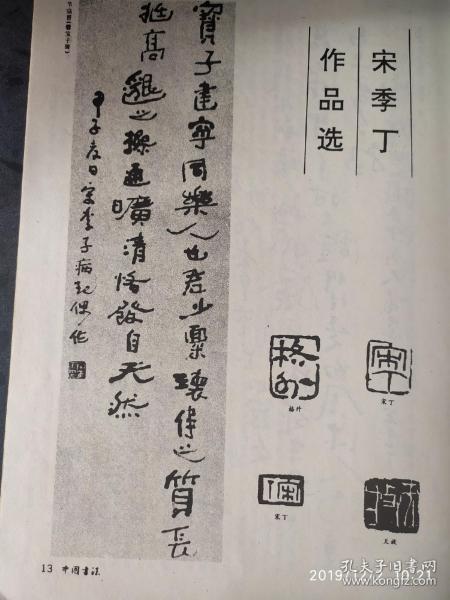 宋季丁
作品选
寶子建寧同樂人也君少稟瓌偉之質長
挺高邈之操通曠清恪發自天然
甲子春日宋季子病起偶作
格外
宋丁
宋丁
天放
13 中国书法
2019/12/7 10:21
孔夫子旧书网